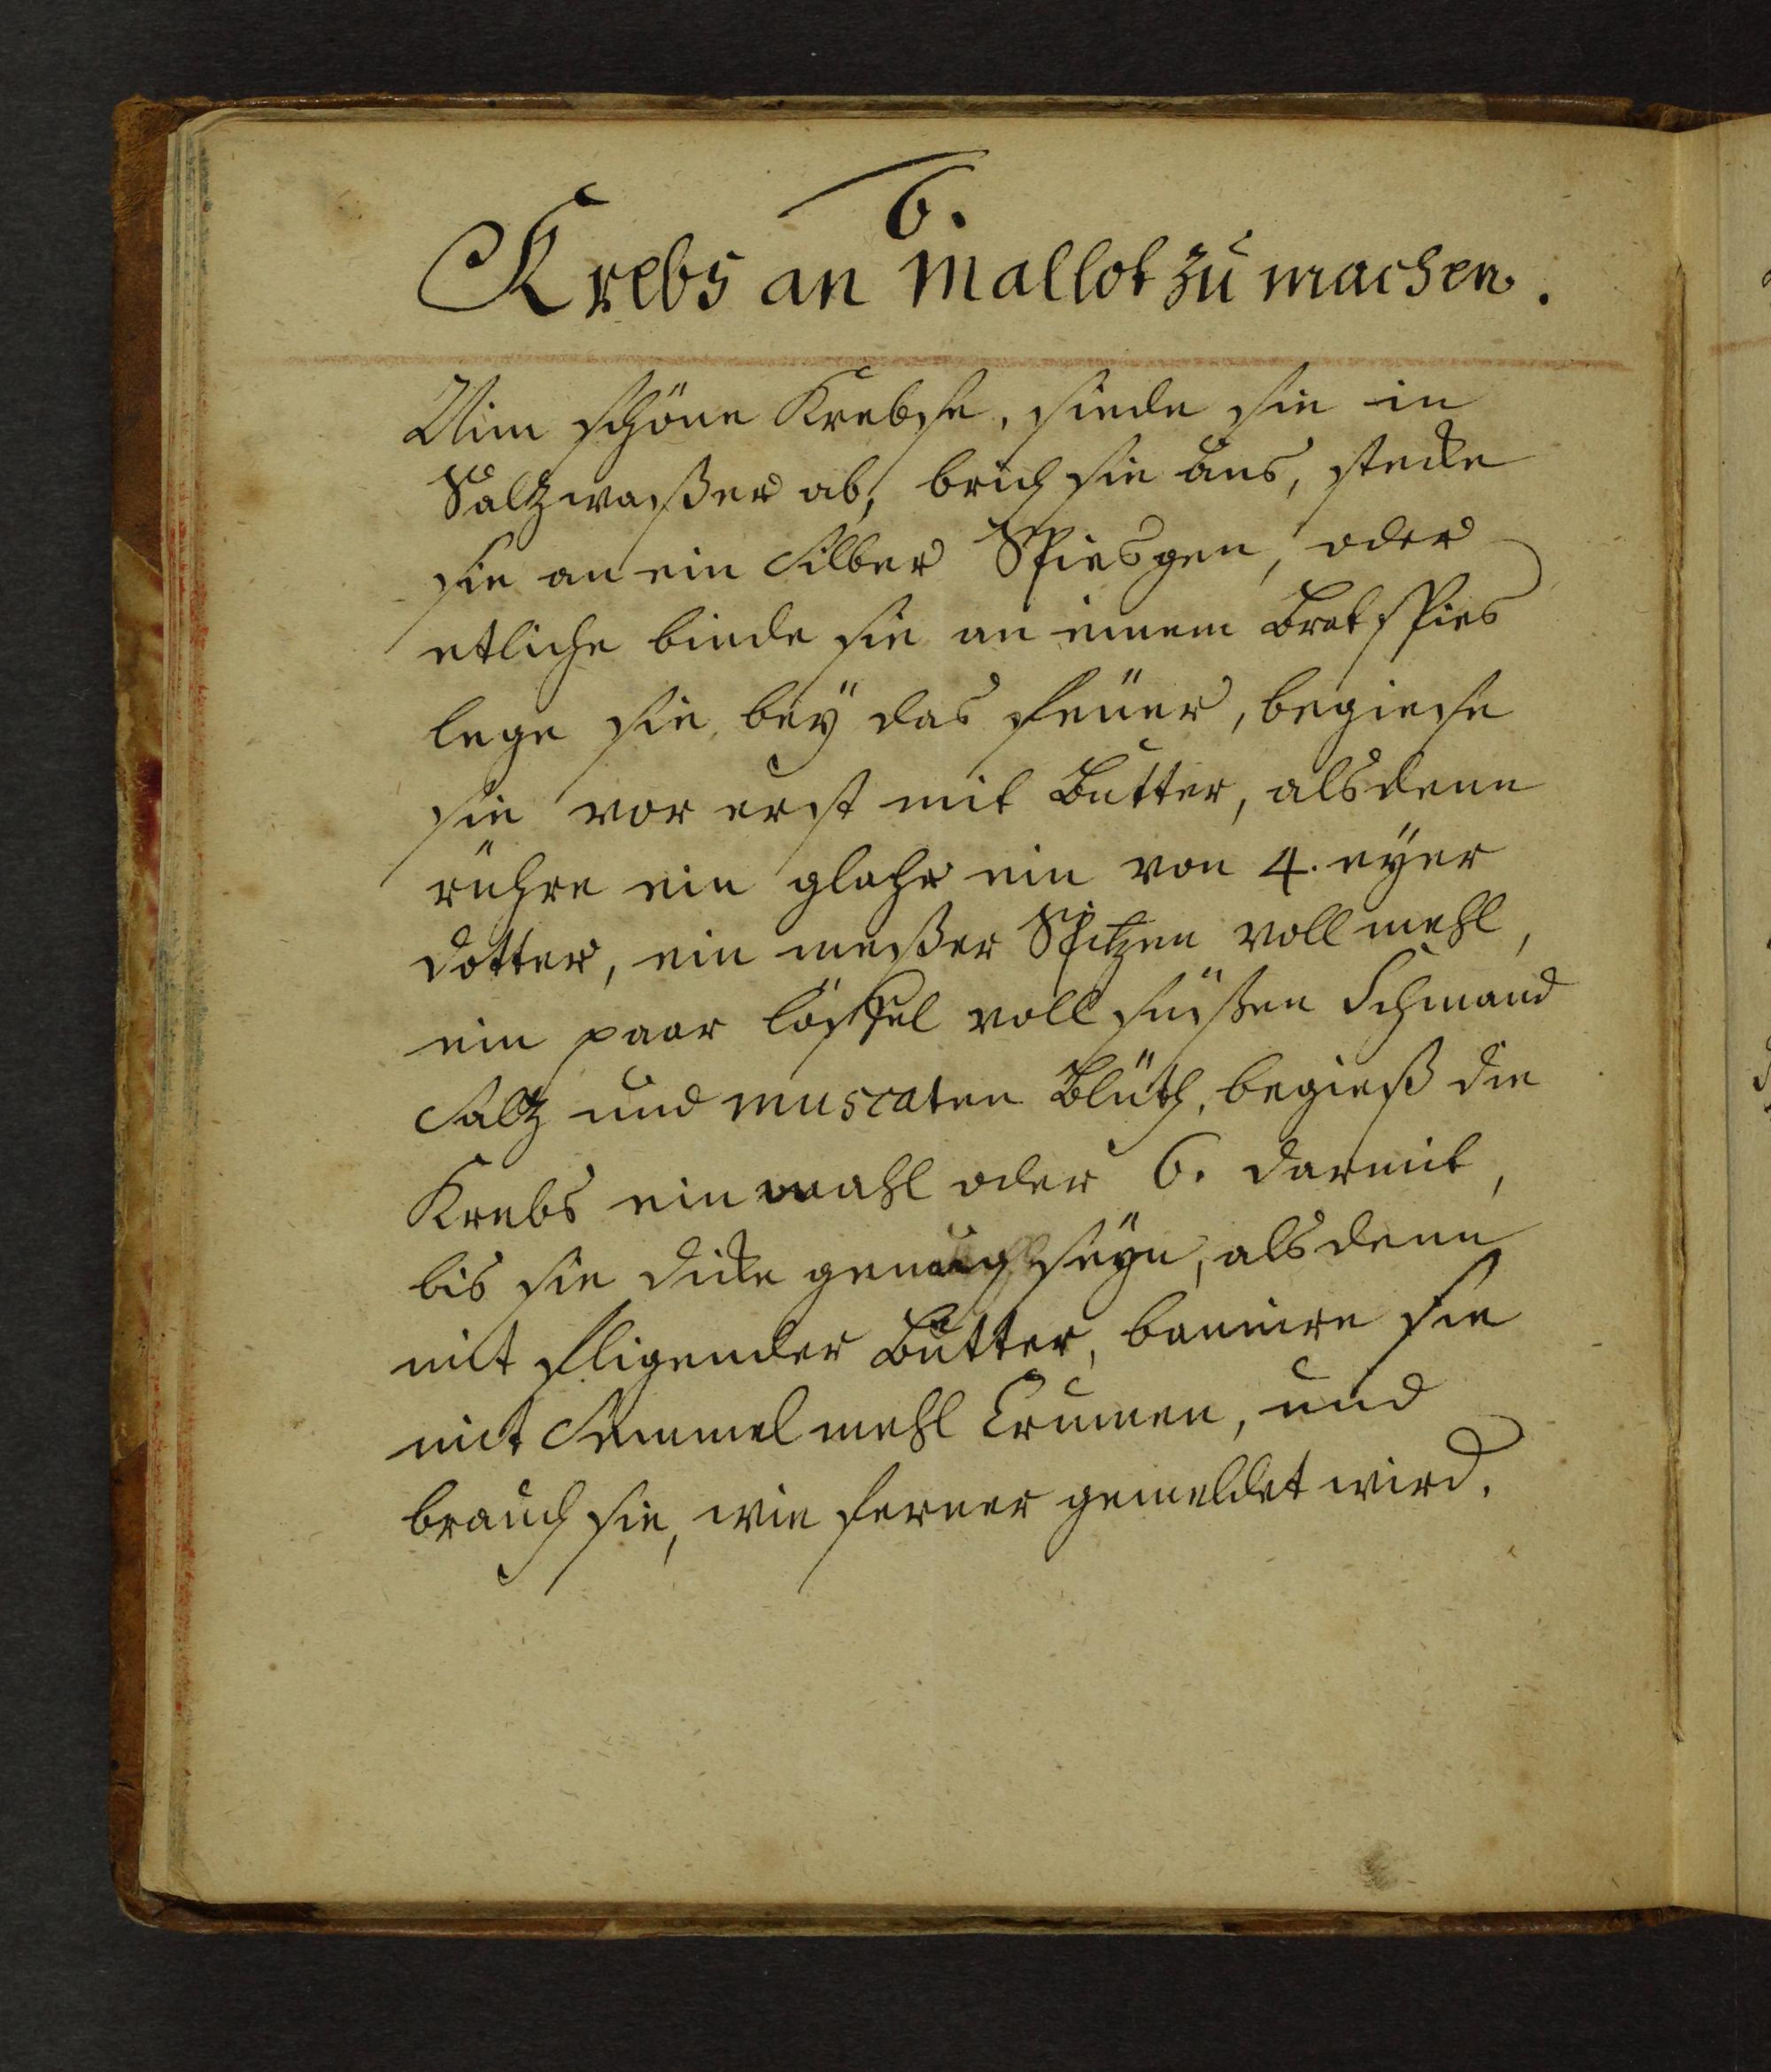 6.
Krebs an Mallot zu machen.
Nim schöne Krebse, siede sie in
Saltzwaßer ab, brich sie aus, stecke
sie an ein Silber Spiesgen, oder
etliche binde sie an einem Bratspies
lege sie bey das feüer, begiese
sie vor erst mit Butter, alsdenn
rühre ein glahr ein von 4. eÿer
dotter, ein meßer Spitzen voll mehl,
ein paar löffel voll süßen Schmand
Saltz und muscaten Blüth, begieß die
Krebs ein mahl oder 6. darmit,
bis sie dicke genug seÿn, alsdenn
mit fligender Butter, bannire sie
mit Semmel mehl Crumen, und
brauch sie, wie ferner gemeldet wird.